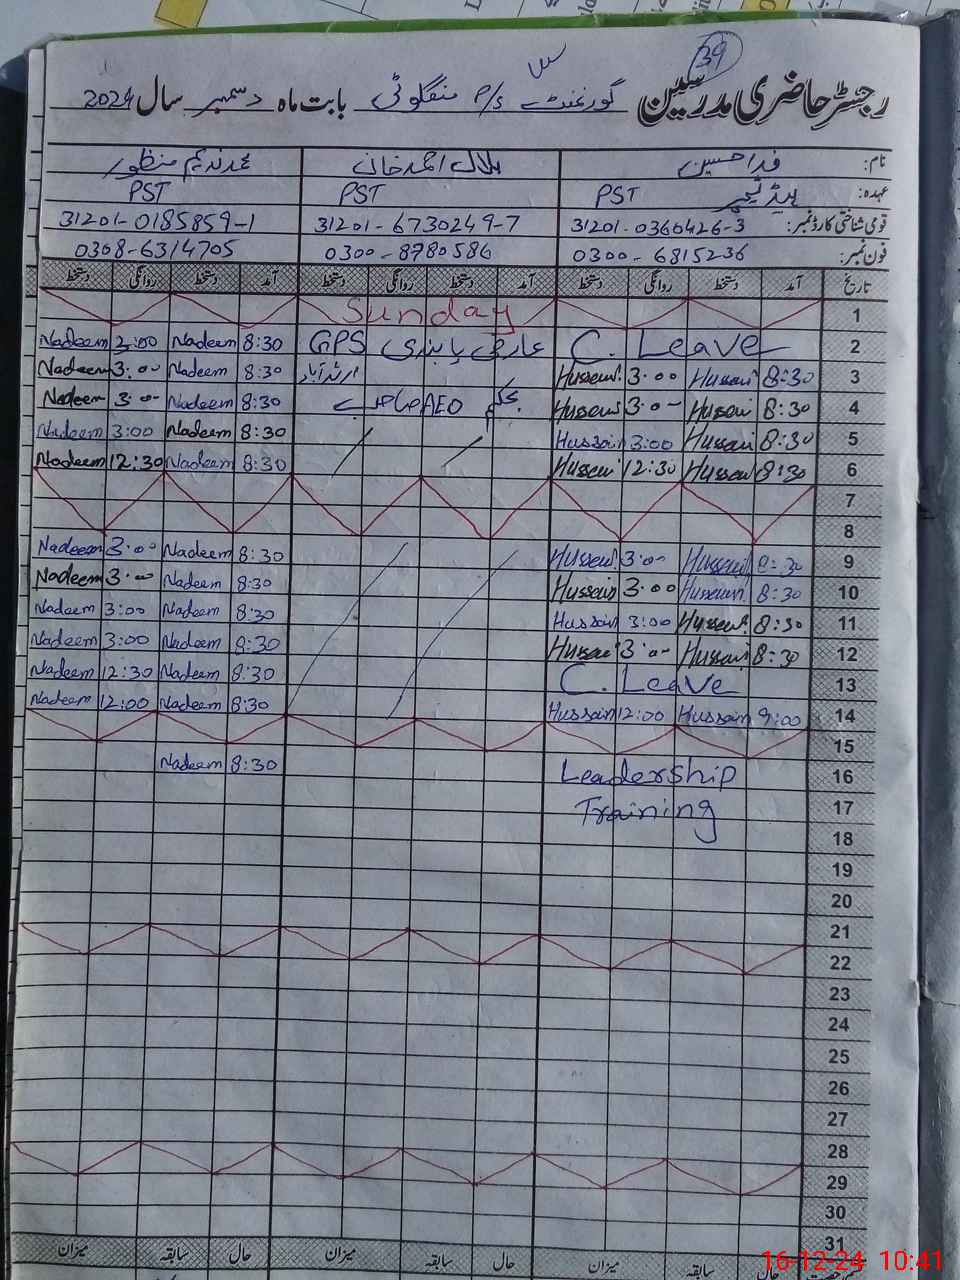 39
رجسٹر حاضری مدرسین گورنمنٹ P/S منگلوٹی بابت ماہ دسمبر سال 2024
نام: فدا حسین ہلال احمد خان محمد ندیم منظور
عہدہ: ہیڈ ٹیچر PST PST PST
قومی شناختی کارڈ نمبر: 31201-0360426-3 31201-6730249-7 31201-0185859-1
فون نمبر: 0300-6815236 0300-8780586 0308-6314705
تاریخ آمد دستخط روانگی دستخط آمد دستخط روانگی دستخط آمد دستخط روانگی دستخط
1 Sunday
2 C. Leave عارضی پابندی GPS 8:30 Nadeem 2:00 Nadeem
3 8:30 Hussain 3:00 Hussain ارشد آباد 8:30 Nadeem 3:00 Nadeem
4 8:30 Hussain 3:00 Hussain بحکم AEO صاحب 8:30 Nadeem 3:00 Nadeem
5 8:30 Hussain 3:00 Hussain 8:30 Nadeem 3:00 Nadeem
6 8:30 Hussain 12:30 Hussain 8:30 Nadeem 12:30 Nadeem
7
8
9 8:30 Hussain 3:00 Hussain 8:30 Nadeem 3:00 Nadeem
10 8:30 Hussain 3:00 Hussain 8:30 Nadeem 3:00 Nadeem
11 8:30 Hussain 3:00 Hussain 8:30 Nadeem 3:00 Nadeem
12 8:30 Hussain 3:00 Hussain 8:30 Nadeem 3:00 Nadeem
13 C. Leave 8:30 Nadeem 12:30 Nadeem
14 9:00 Hussain 12:00 Hussain 8:30 Nadeem 12:00 Nadeem
15
16 Leadership 8:30 Nadeem
17 Training
18
19
20
21
22
23
24
25
26
27
28
29
30
31
حال سابقہ میزان حال سابقہ میزان حال سابقہ میزان
16-12-24 10:41